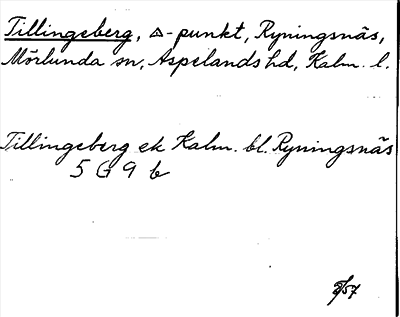 Tillingeberg, △-punkt, Ryningsnäs,
Mörlunda sn, Aspelands hd, Kalm. l.
Tillingeberg ek Kalm. bl. Ryningsnäs
5 G 9 b